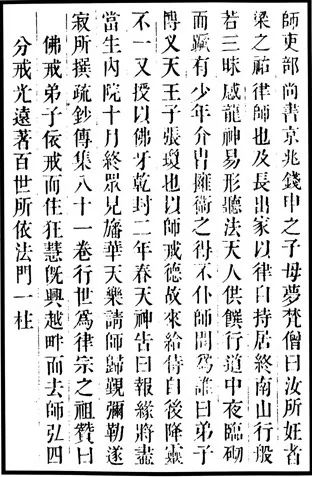 師吏部尚書京兆錢申之子母夢梵僧曰汝所姙者
梁之祐律師也及長出家以律自持居終南山行般
若三昧感龍神易形聽法天人供饌行道中夜臨砌
而蹶有少年介冑擁衞之得不仆師問爲誰曰弟子
博叉天王子張瓊也以師戒德故來給侍自後降靈
不一又授以佛牙乾封二年春天神告曰報緣將盡
當生內院十月終眾見旛華天樂請師歸覲彌勒遂
寂所撰疏鈔傳集八十一卷行世爲律宗之祖贊曰
佛戒弟子依戒而住狂慧旣興越畔而去師弘四
分戒光遠著百世所依法門一柱